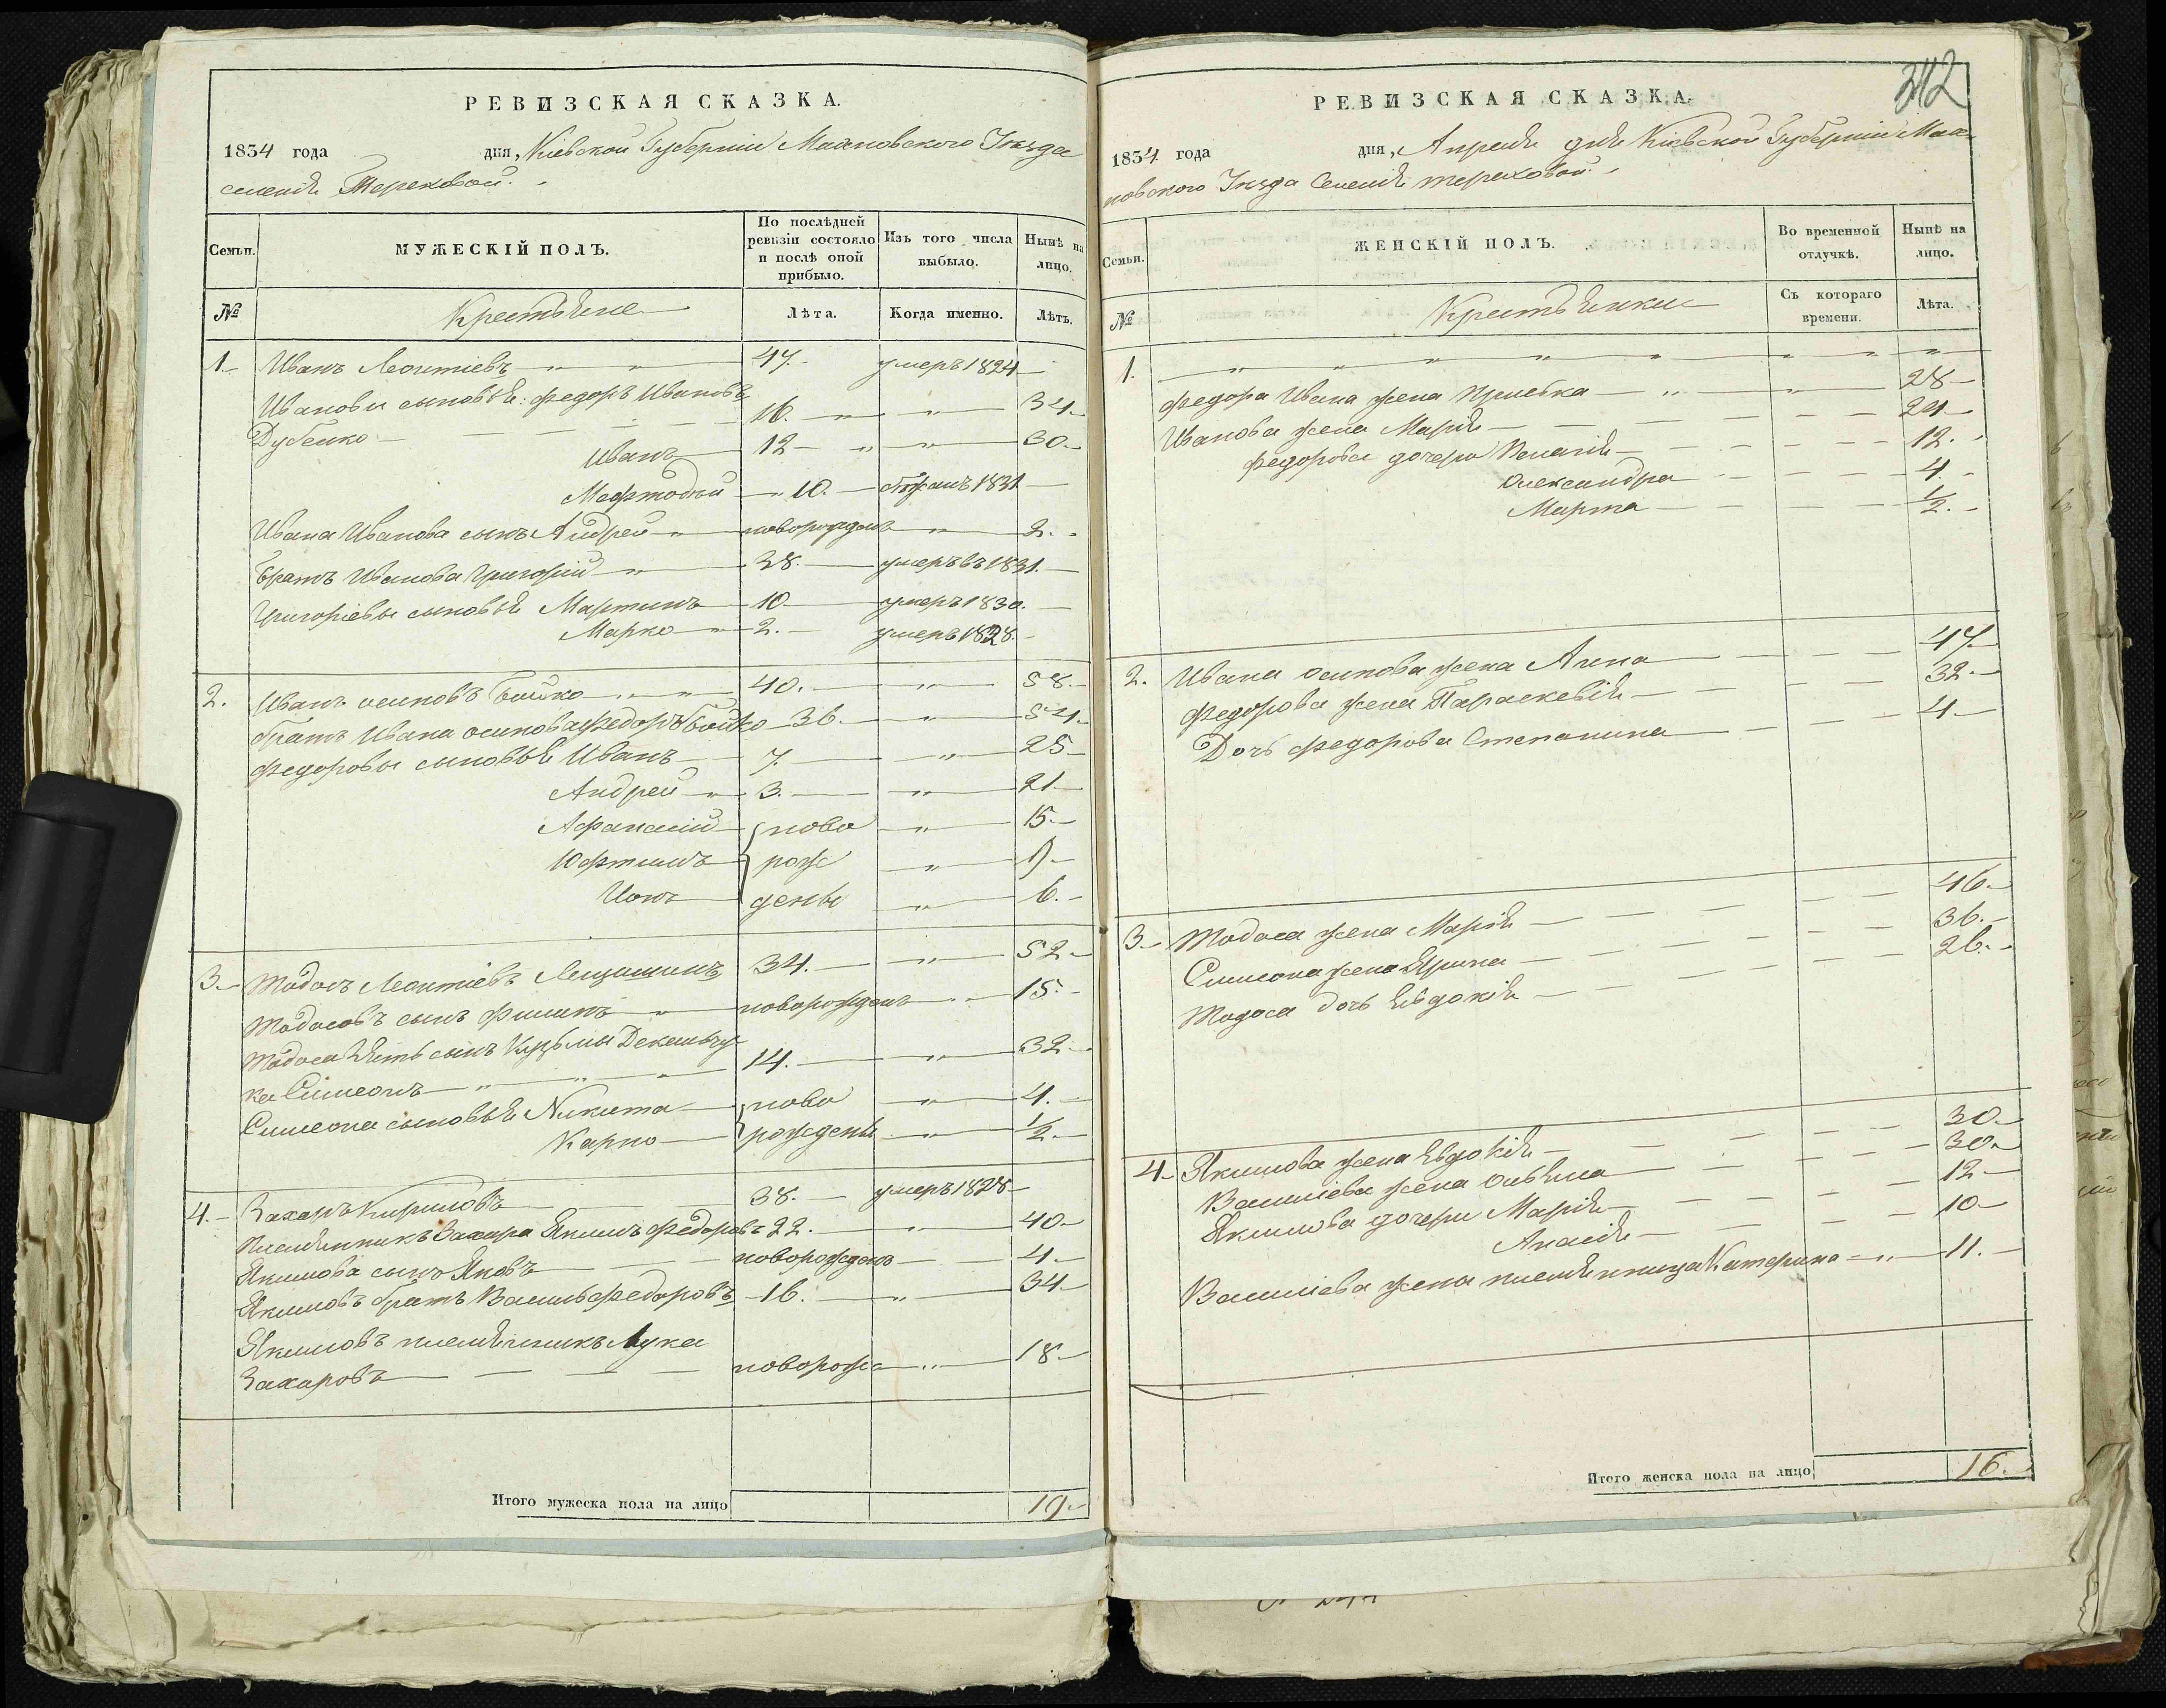 РЕВИЗСКАЯ СКАЗКА.
1834 года дня, Кіевской Губерніи Махновского Уезда
селенія Тереховой.
Семьи.
МУЖЕСКІЙ ПОЛЪ.
По послѣдней ревизіи состояло и послѣ оной прибыло.
Изъ того числа выбыло.
Нынѣ на лицо.
№
Крестьяне
Лѣта.
Когда именно.
Лѣтъ.
1. Иванъ Леонтіевъ 47. умеръ 1824
Ивановы сыновья: Федоръ Ивановъ
Дубенко 16. 34.
Иванъ 12 30.
Мефтодий 10. 1831
Ивана Иванова сынъ Андрей новорожденъ 2.
Братъ Иванова Григорій 38. умеръ въ 1831.
Григоріевы сыновья Мартинъ 10 умеръ 1830.
Марко 2. умеръ 1828.
2. Иванъ осиповъ Бойко 40. 58.
братъ Ивана осипова Федоръ Бойко 36. 54.
Федоровы сыновья Иванъ 7. 25
Андрей 3. 21
Афанасій ново 15.
Юфтимъ рож 9
Іонъ дены 6.
3. Тодосъ Леонтіевъ 34. 52
Тодосовъ сынъ Филипъ новорожденъ 15.
Тодоса зять сынъ Кузьмы
ка Симеонъ 14. 32
Симеона сыновья Никита ново 4.
Карпо рождены ½
4. Захаръ Кириловъ 38. умеръ 1828
племянникъ Захара Якимъ Федоровъ 22. 40
Якимова сынъ Яковъ новорожденъ 4
Якимовъ братъ Василь Федоровъ 16. 34
Якимовъ племянникъ Лука
Захаровъ новорож 18
Итого мужеска пола на лицо 19
312
РЕВИЗСКАЯ СКАЗКА.
1834 года дня, Апреля дня Кіевской Губерніи Мах
новского Уезда Селенія тереховой.
Семьи.
ЖЕНСКІЙ ПОЛЪ.
Во временной отлучкѣ.
Нынѣ на лицо.
№
Крестьянки
Съ котораго времени.
Лѣта.
1.
Федора Ивана жена 28
Иванова жена Марія 24
Федорова дочери Пелагія 12.
Олександра 4.
Марта ½.
2. Ивана осипова жена Анна 47
Федорова жена Параскевія 32.
Дочь Федорова Степанина 4
3. Тодоса жена Марія 46.
Симеона жена Ярина 36.
Тодоса дочь Евдокія 26.
4. Якимова жена Евдокія 30
Василіева жена 30
Якимова дочери Марія 12
Анасія 10
Василіева жена племянница Катерина 11.
Итого женска пола на лицо 16.